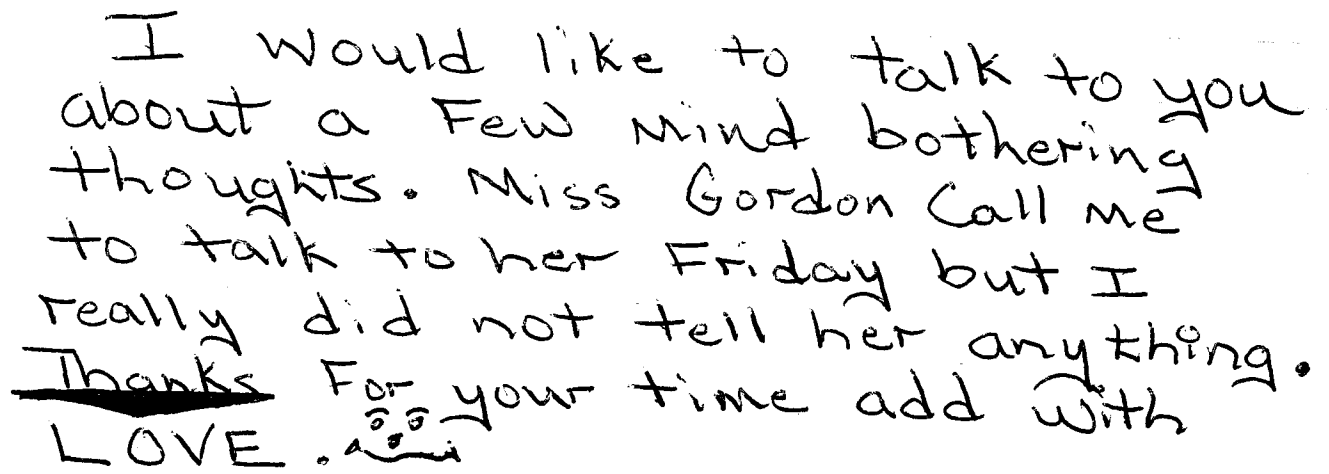 I would like to talk to you
about a Few Mind bothering
thoughts. Miss Gordon Call Me
to talk to her Friday but I
really did not tell her anything.
Thanks For your time add with
LOVE.